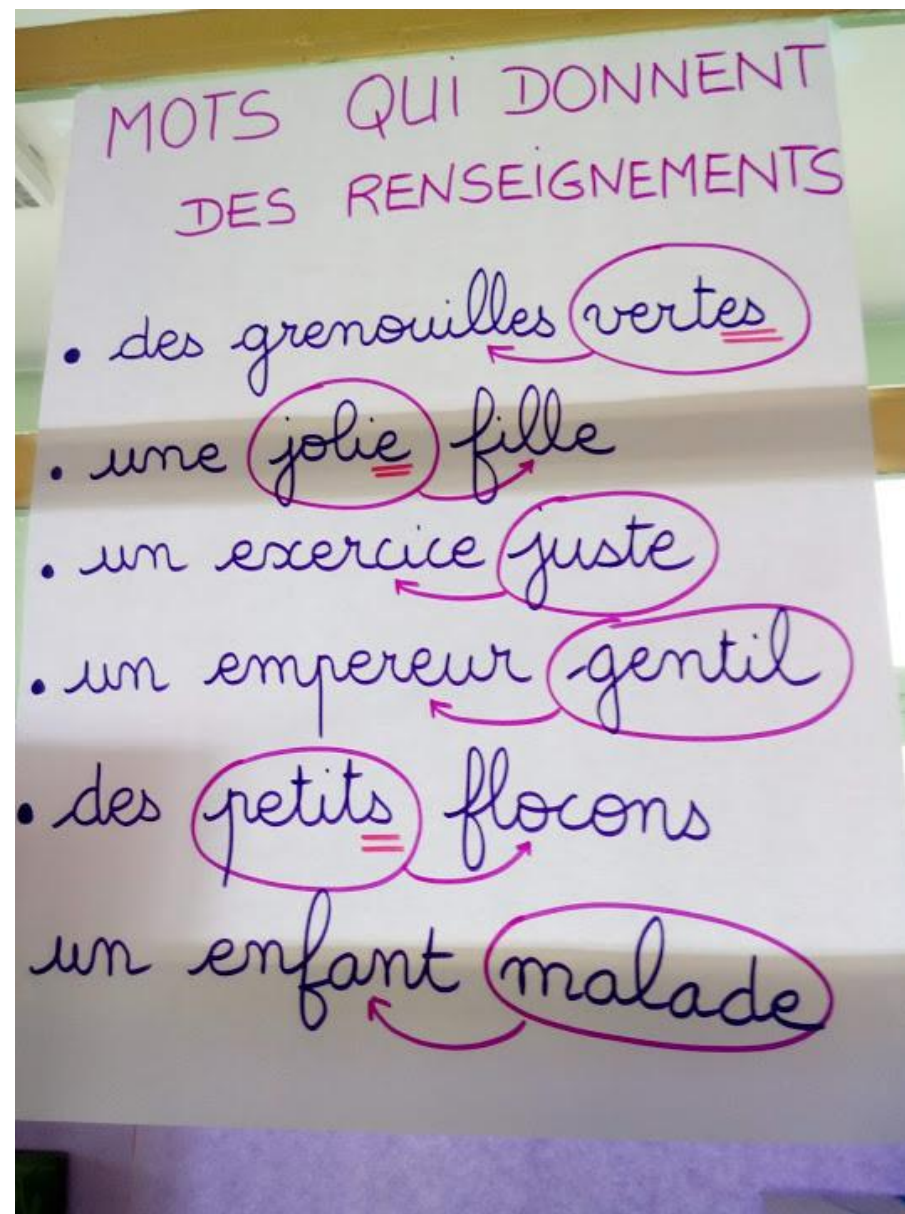 MOTS QUI DONNENT
DES RENSEIGNEMENTS
. des grenouilles vertes
. une jolie fille
. un exercice juste
. un empereur gentil
. des petits flocons
un enfant malade